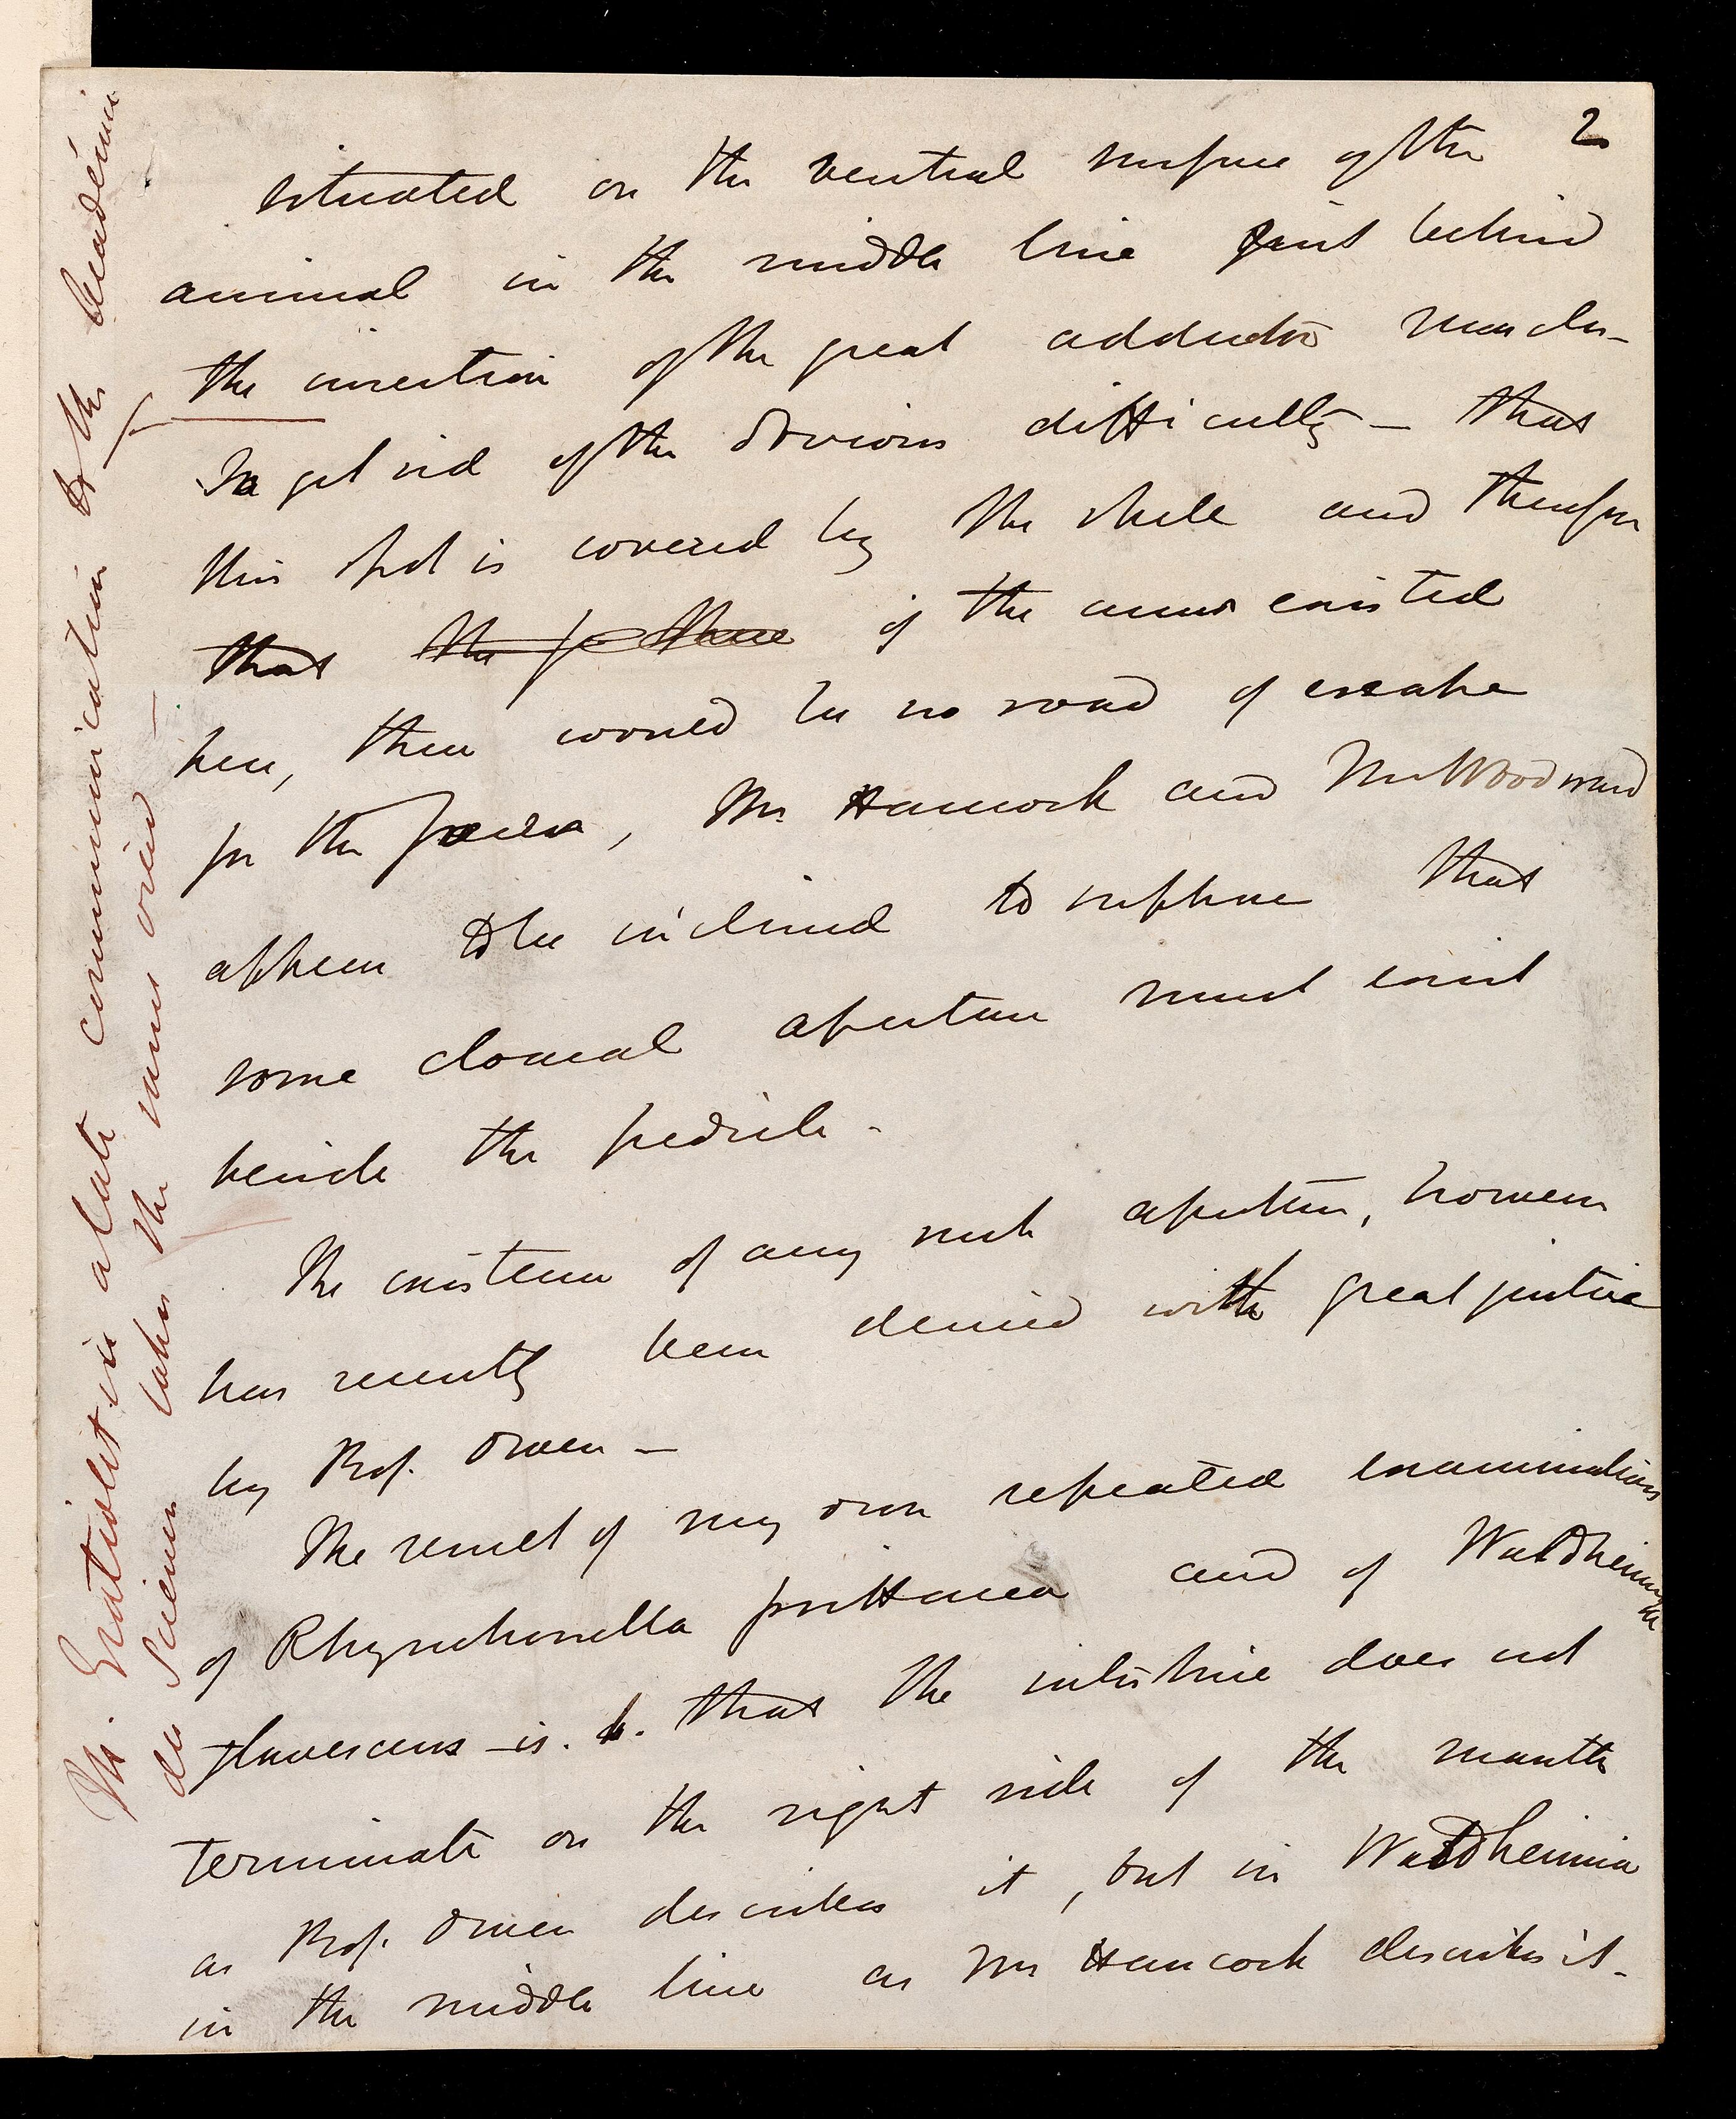 2
situated on the ventral surface of the
animal in the middle line just behind
the insertion of the great adductor muscles-
To get rid of the obvious difficulty — that
this spot is covered by the shell and therefore
that the if the anus existed
here, there would be no road of escape
for the faeces, Mr Hancock and Mr Woodward
appear to be inclined to suppose that
some cloacal aperture must exist
beside the pedicle -
The existence of any such aperture, however
has recently been denied with great justice
by Prof. Owen —
The result of my own repeated examinations
of Rhynchonella psittacea and of Waldheimia
flavescens is. that the intestine does not
terminate on the right side of the mantle
as Prof. Owen describes it, but in Waldheimia
in the middle line as Mr Hancock describes it -
M. Gratiolet in a late communication to the Academie
des Sciences takes the same view —